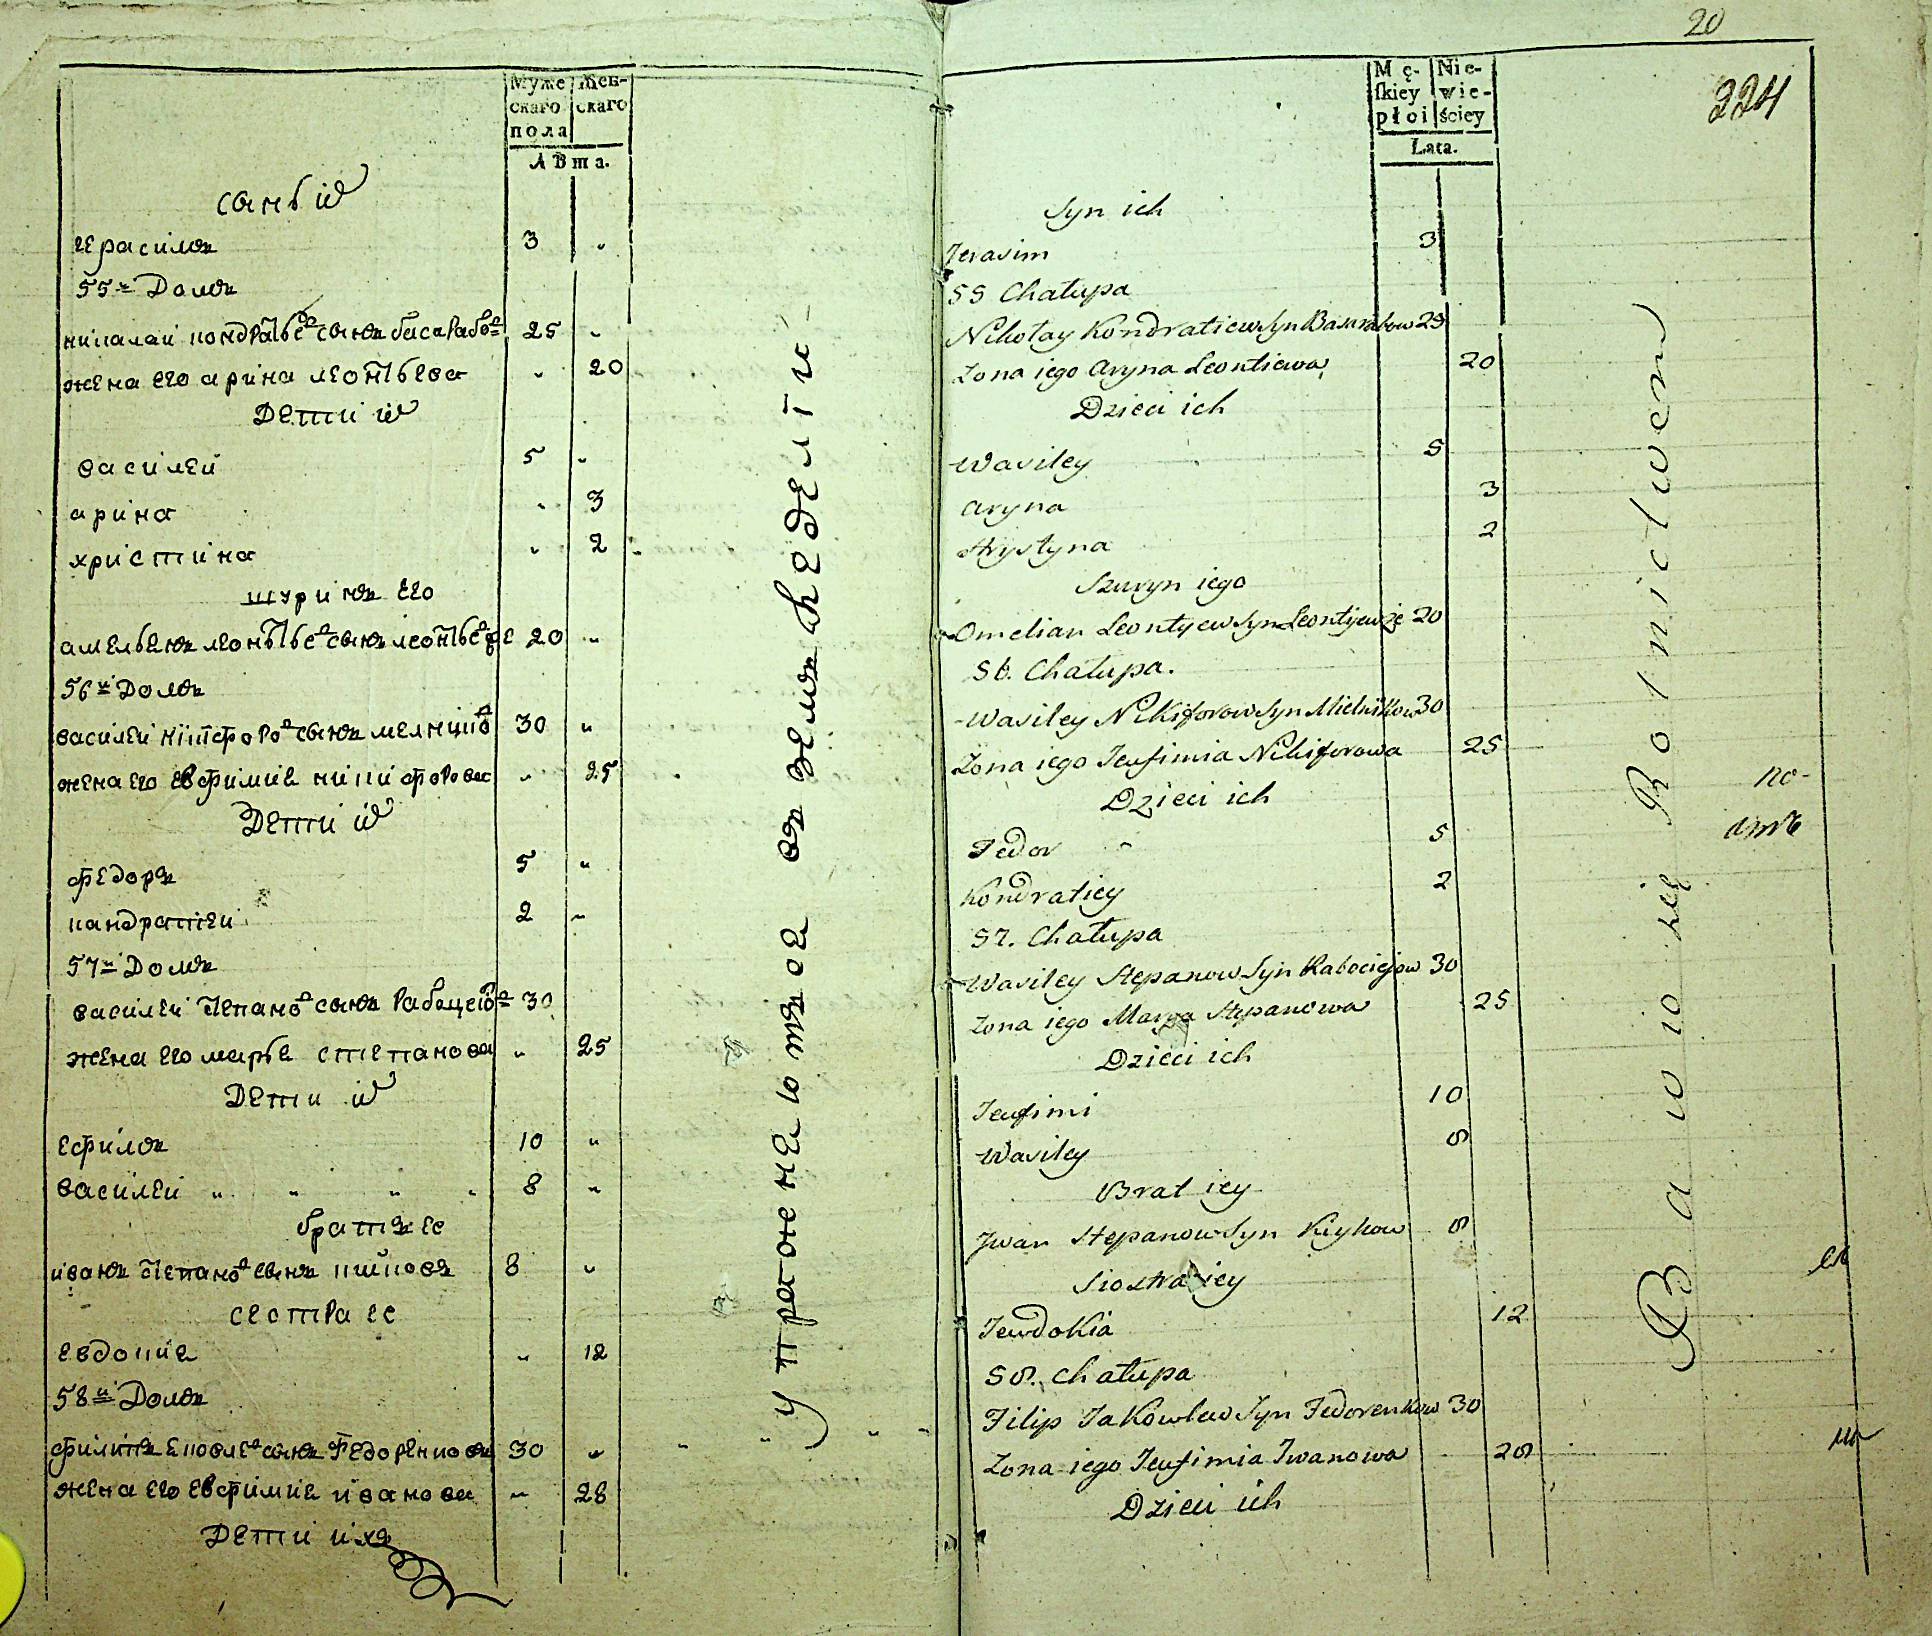 Муже Жен-
скаго скаго
пола
Лѣта.
сынъ их
герасимъ 3 "
55й Домъ
николаи кондратьевъ сынъ басарабовъ 25 "
жена его арина леонтьева " 20
Дети их
василеи 5 "
арина " 3
христина " 2
шуринъ его
амельянъ леонтьевъ сынъ леонтьевже 20 "
56й Домъ
василеи никифоровъ сынъ мелниковъ 30 "
жена его евфимия никифорова " 25
Дети их
федоръ 5 "
кандратеи 2 "
57й Домъ
василеи степановъ сынъ рабацеювъ 30
жена его марья степанова " 25
Дети их
ефимъ 10 "
василеи " " " " 8 "
братъ ее
иванъ степановъ сынъ кийковъ 8 "
сестра ее
евдокия " 12
58й Домъ
филипъ яковлевъ сынъ федоренковъ 30 "
жена его евфимия иванова " 28
Дети ихъ
упражняются въ земледелїи
20
224
Mę- Nie-
ſkiey wie-
płci ściey
Lata.
Syn ich
Jerasim 3
55 Chałupa
Nikołay Kondratiew Syn Basarabow 25
Zona iego Aryna Leontiewa 20
Dzieci ich
Wasiley 5
Aryna 3
Hrystyna 2
Szuryn iego
Omelian Leontyew Syn Leontyewże 20
56. Chałupa.
Wasiley Nikiforow Syn Mielnikow 30
Zona iego Jeufimia Nikiforowa 25
Dzieci ich
Fedor 5
Kondratiey 2
57. Chałupa
Wasiley Stepanow Syn Rabocieiow 30
Zona iego Marya Stepanowa 25
Dzieci ich
Jeufimi 10
Wasiley 8
Brat iey
Jwan Stepanow Syn Kiykow 8
Siostra iey
Jewdokia 12
58. Chałupa
Filip Jakowlew Syn Fedorenkow 30
Zona iego Jeufimia Iwanowa 28
Dzieci ich
Bawią się Rolnictwem
по-